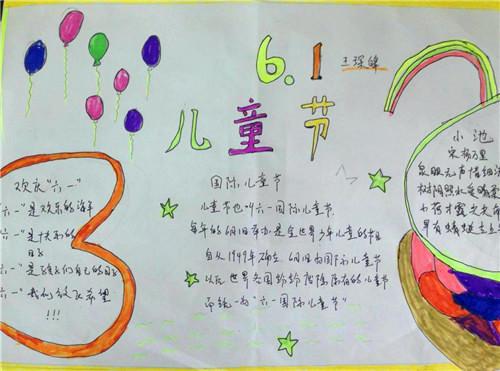 6.1
王琛峰
儿童节
欢庆"六一"
"六一"是欢乐的海洋
"六一"是快乐的
日子
"六一"是我们自己的日子
"六一"我们放飞希望
!!!
国际儿童节
儿童节也叫六一国际儿童节
每年的6月1日举办是全世界少年儿童的节日
自从1949年确立6月1日为国际儿童节
以后世界各国纷纷废除原有的儿童节
而统一为"六一国际儿童节"
小池
宋 杨万里
泉眼无声惜细流
树阴照水爱晴柔
小荷才露尖尖角
早有蜻蜓立上